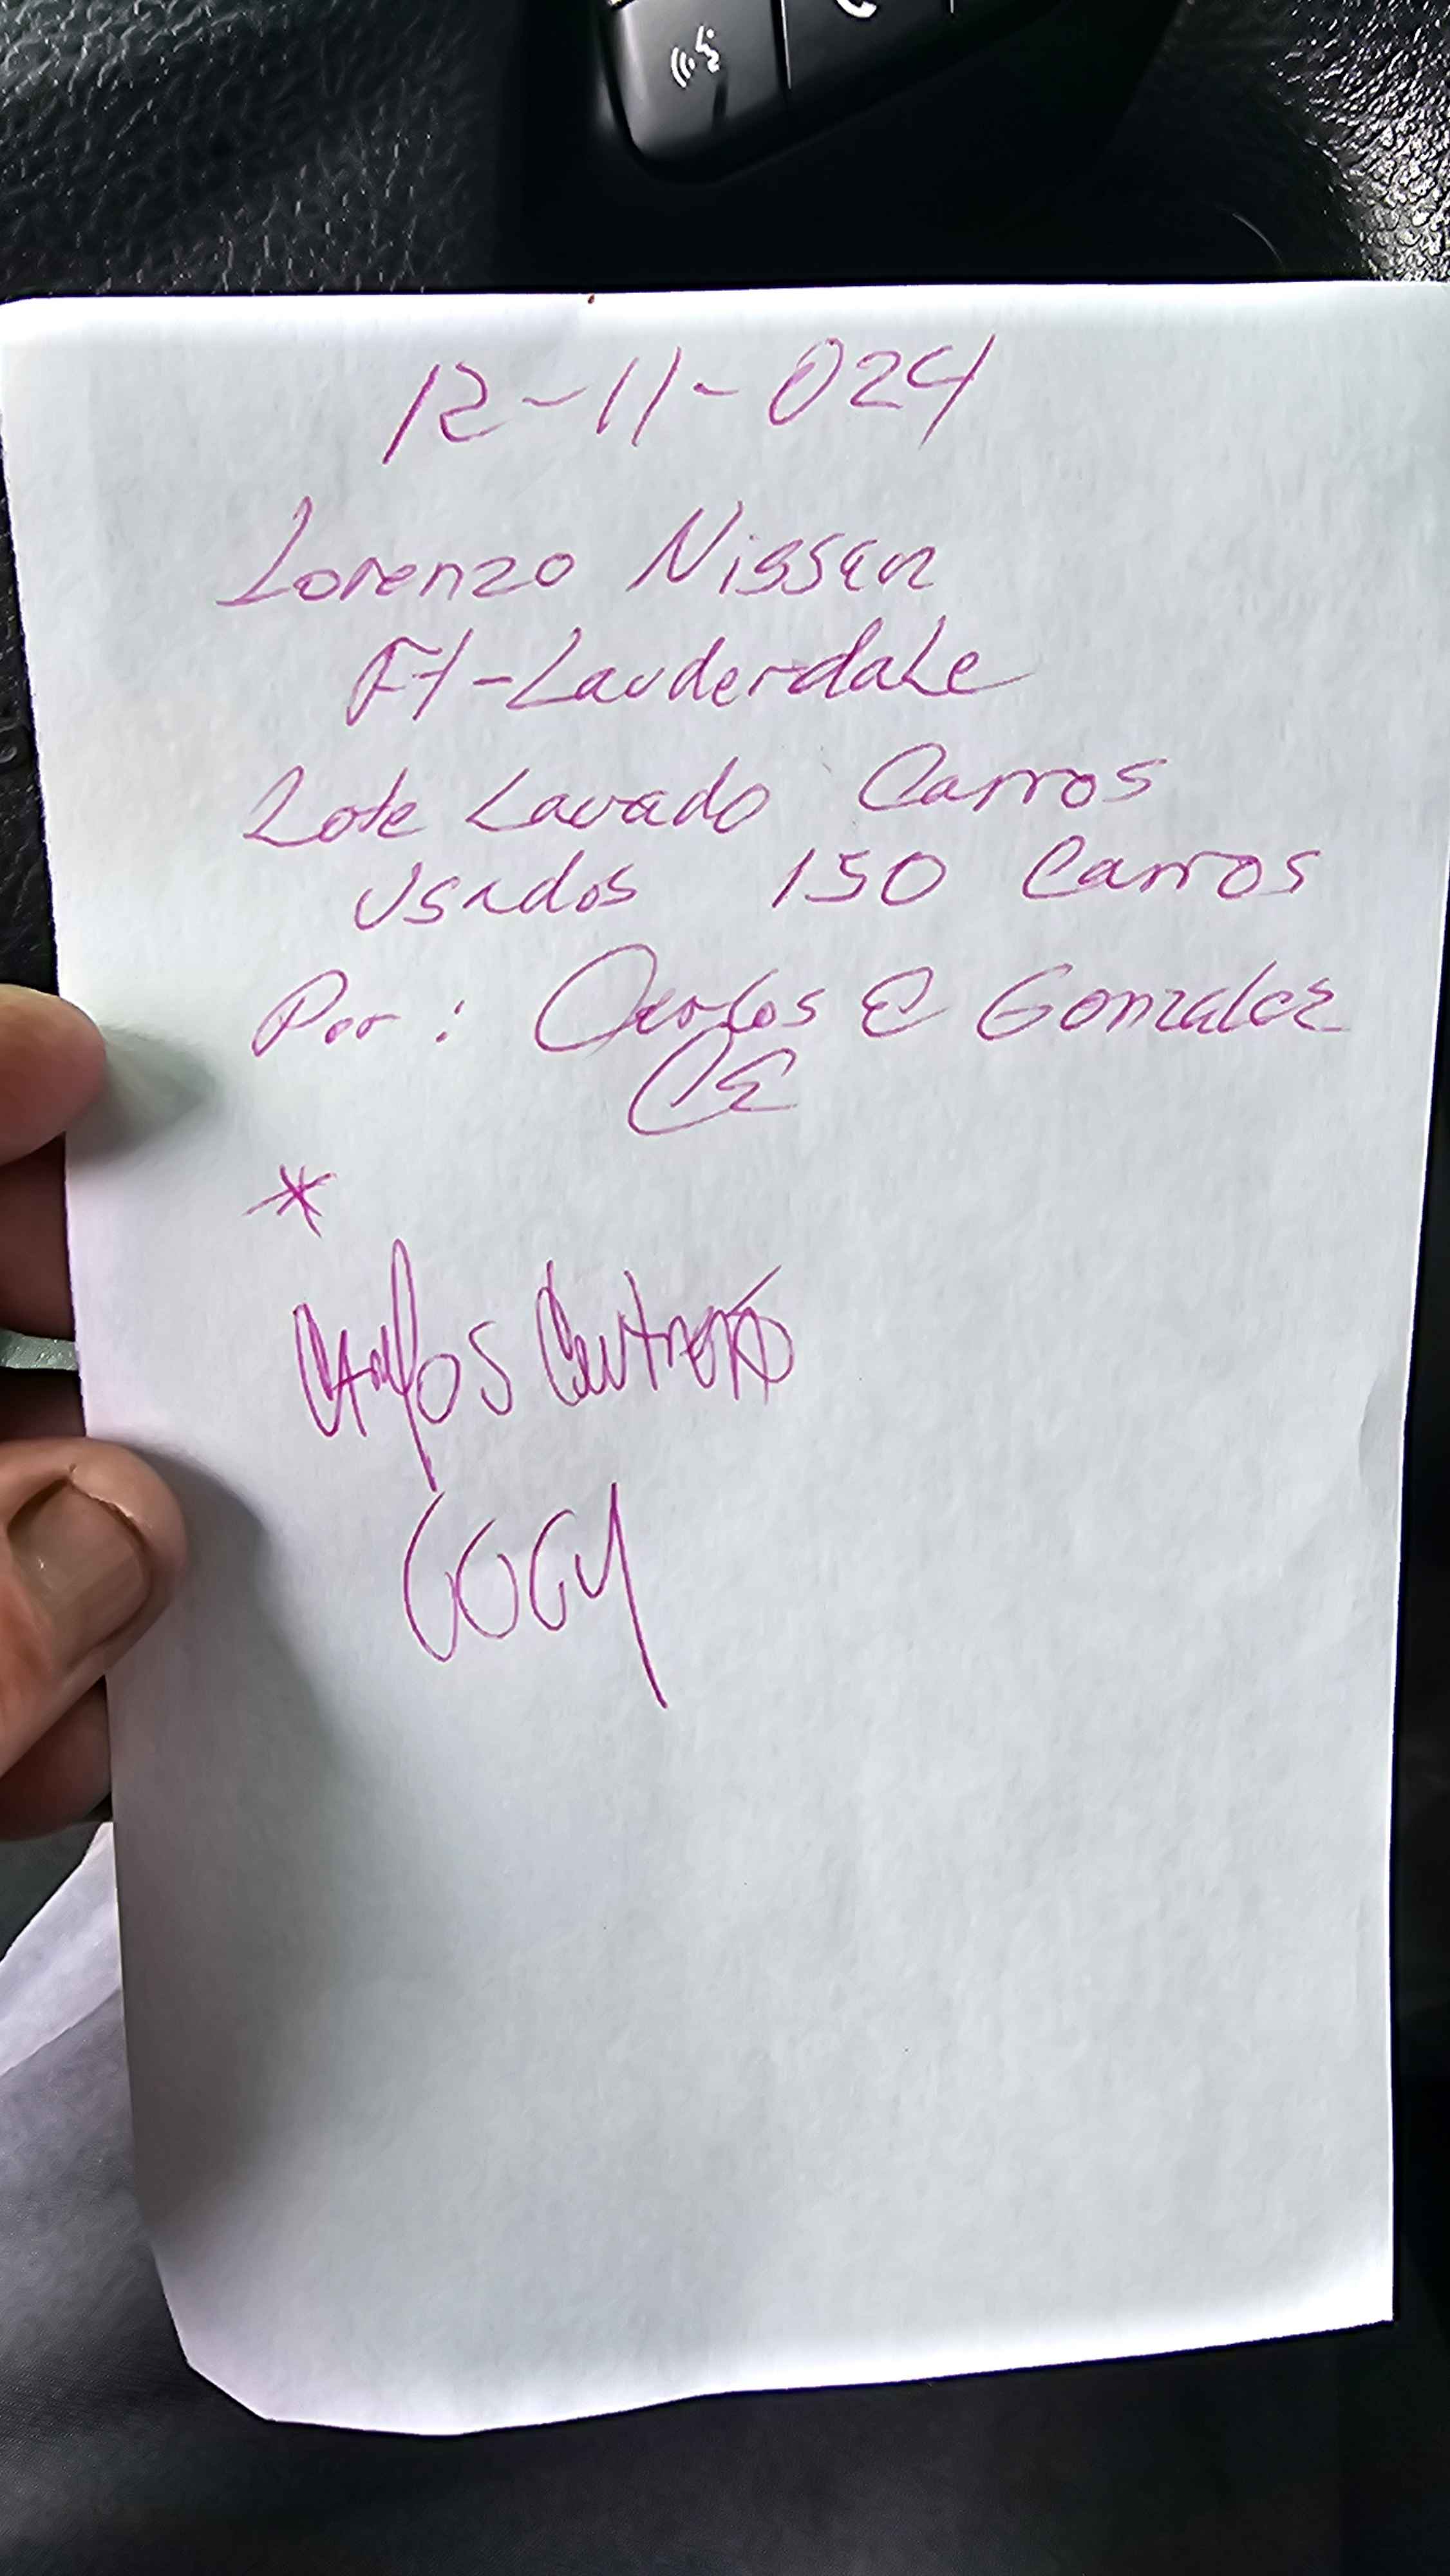 12-11-024
Lorenzo Nissan
Ft-Lauderdale
Lote Lavado Carros
Usados 150 Carros
Por: Carlos E Gonzalez
CE
*
Carlos